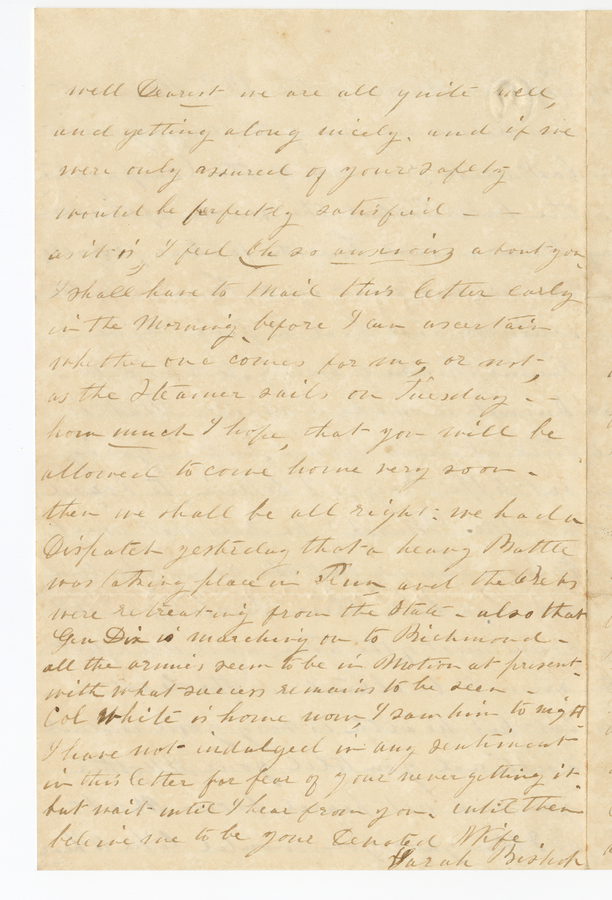 well Dearest we are all quite well,
and getting along nicely. and if we
were only assured of your safety
would be perfectly satisfied - -
as it is, I feel Oh so anxious about you
I shall have to Mail this letter early
in the Morning before I can ascertain
whether one comes for me, or not,
as the Steamer sails on Tuesday. -
how much I hope, that you will be
allowed to come home very soon -
then we shall be all right: we had a
Dispatch yesterday that a heavy Battle
was taking place in Tenn and the Rebs
were retreating from the State - also that
Gen Dix is marching on to Richmond -
all the armies seem to be in Motion at present -
with what success remains to be seen -
Col White is home now, I saw him to night
I have not indulged in any sentiment
in this letter for fear of your never getting it
but wait until I hear from you. until then
believe me to be your Devoted Wife
Sarah Bishop